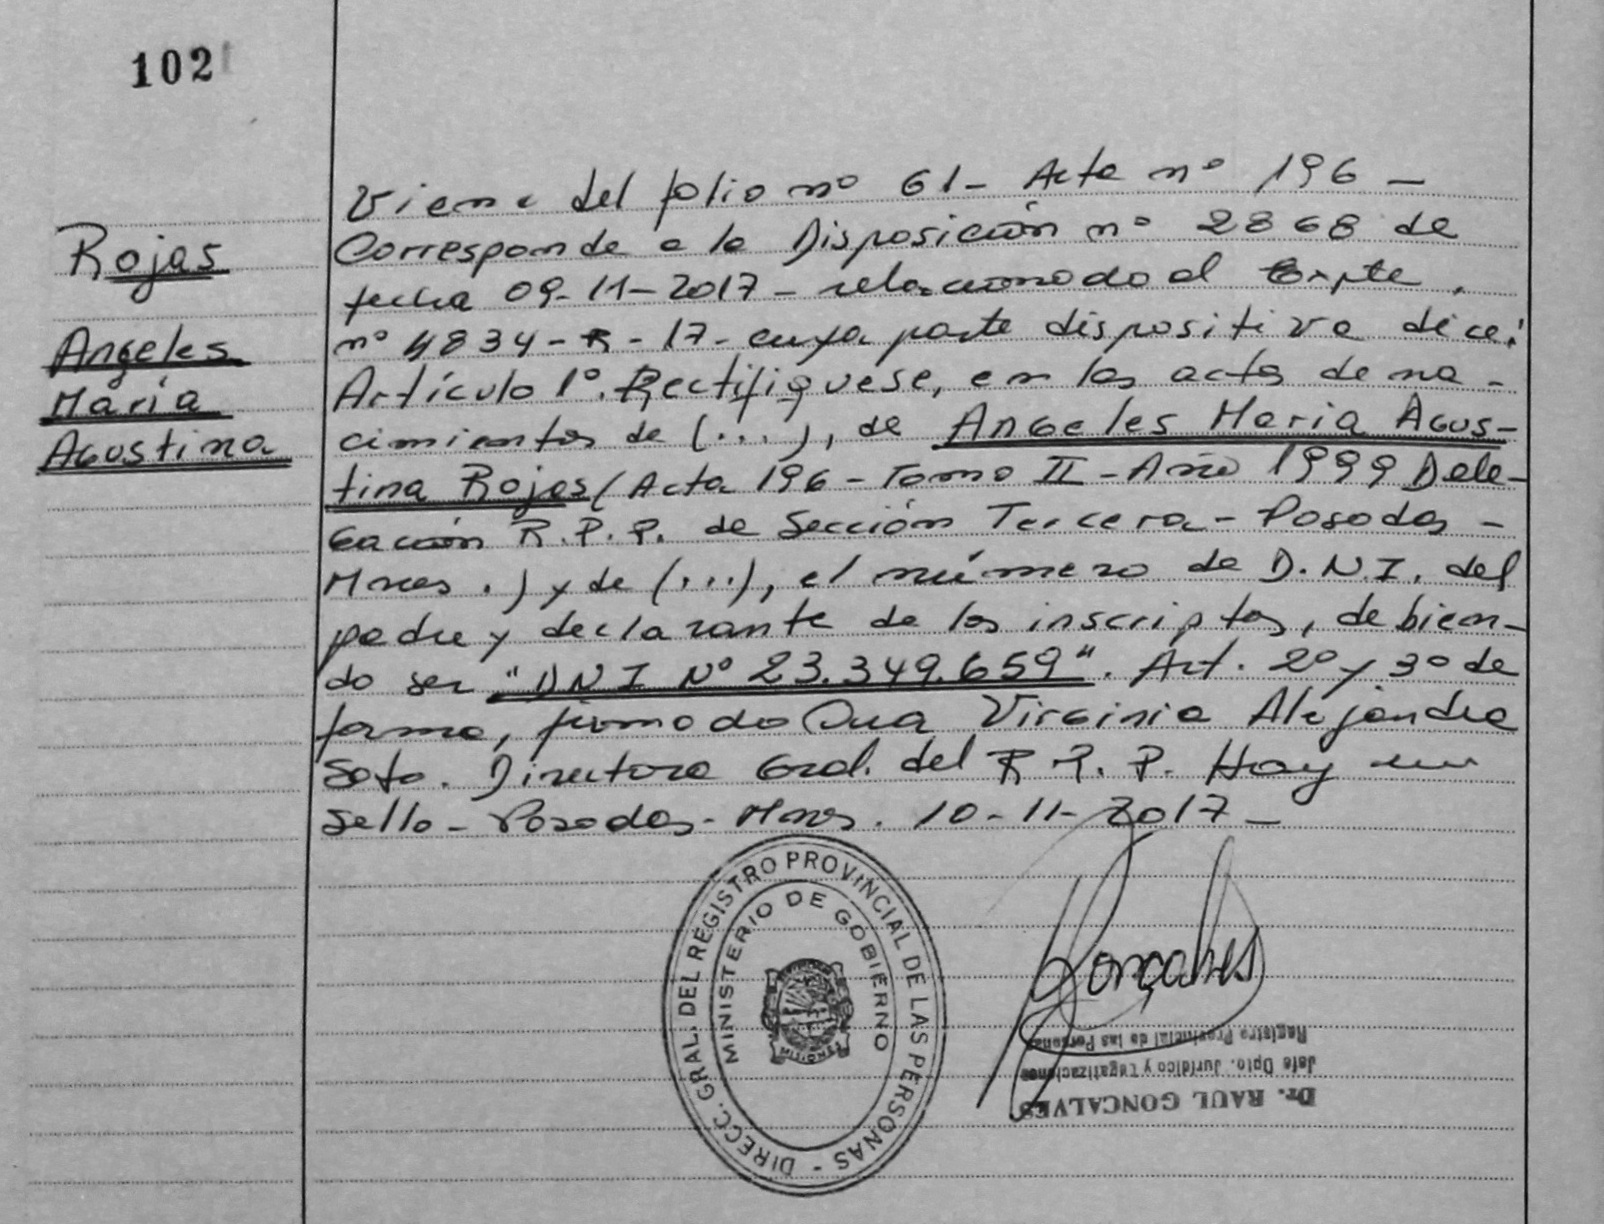 102
Rojas
Angeles
María
Agustina
Viene del folio nº 61- Acta nº 196 -
Corresponde a la Disposición nº 2868 de
fecha 09-11-2017- relacionado al Expte.
nº 4834-R-17- cuya parte dispositiva dice:
Artículo 1º. Rectifíquese, en las actas de na-
cimientos de (...), de Angeles Maria Agus-
tina Rojas (Acta 196 - Tomo II - Año 1999 Dele-
gación R.P.P. de Sección Tercera - Posadas -
Mnes.) y de (...), el número de D.N.I. del
padre y declarante de los inscriptos, debien-
do ser "DNI Nº 23.349.659". Art. 2º y 3º de
forma, firmado Dra Virginia Alejandra
Soto. Directora Gral. del R.P.P. Hay un
sello - Posadas - Mnes. 10-11-2017 -
DIRECC. GRAL. DEL REGISTRO PROVINCIAL DE LAS PERSONAS -
MINISTERIO DE GOBIERNO
MISIONES
Gonçalves
Dr. RAUL GONCALVES
Jefe Dpto. Jurídico y Legalizaciones
Registro Provincial de las Personas